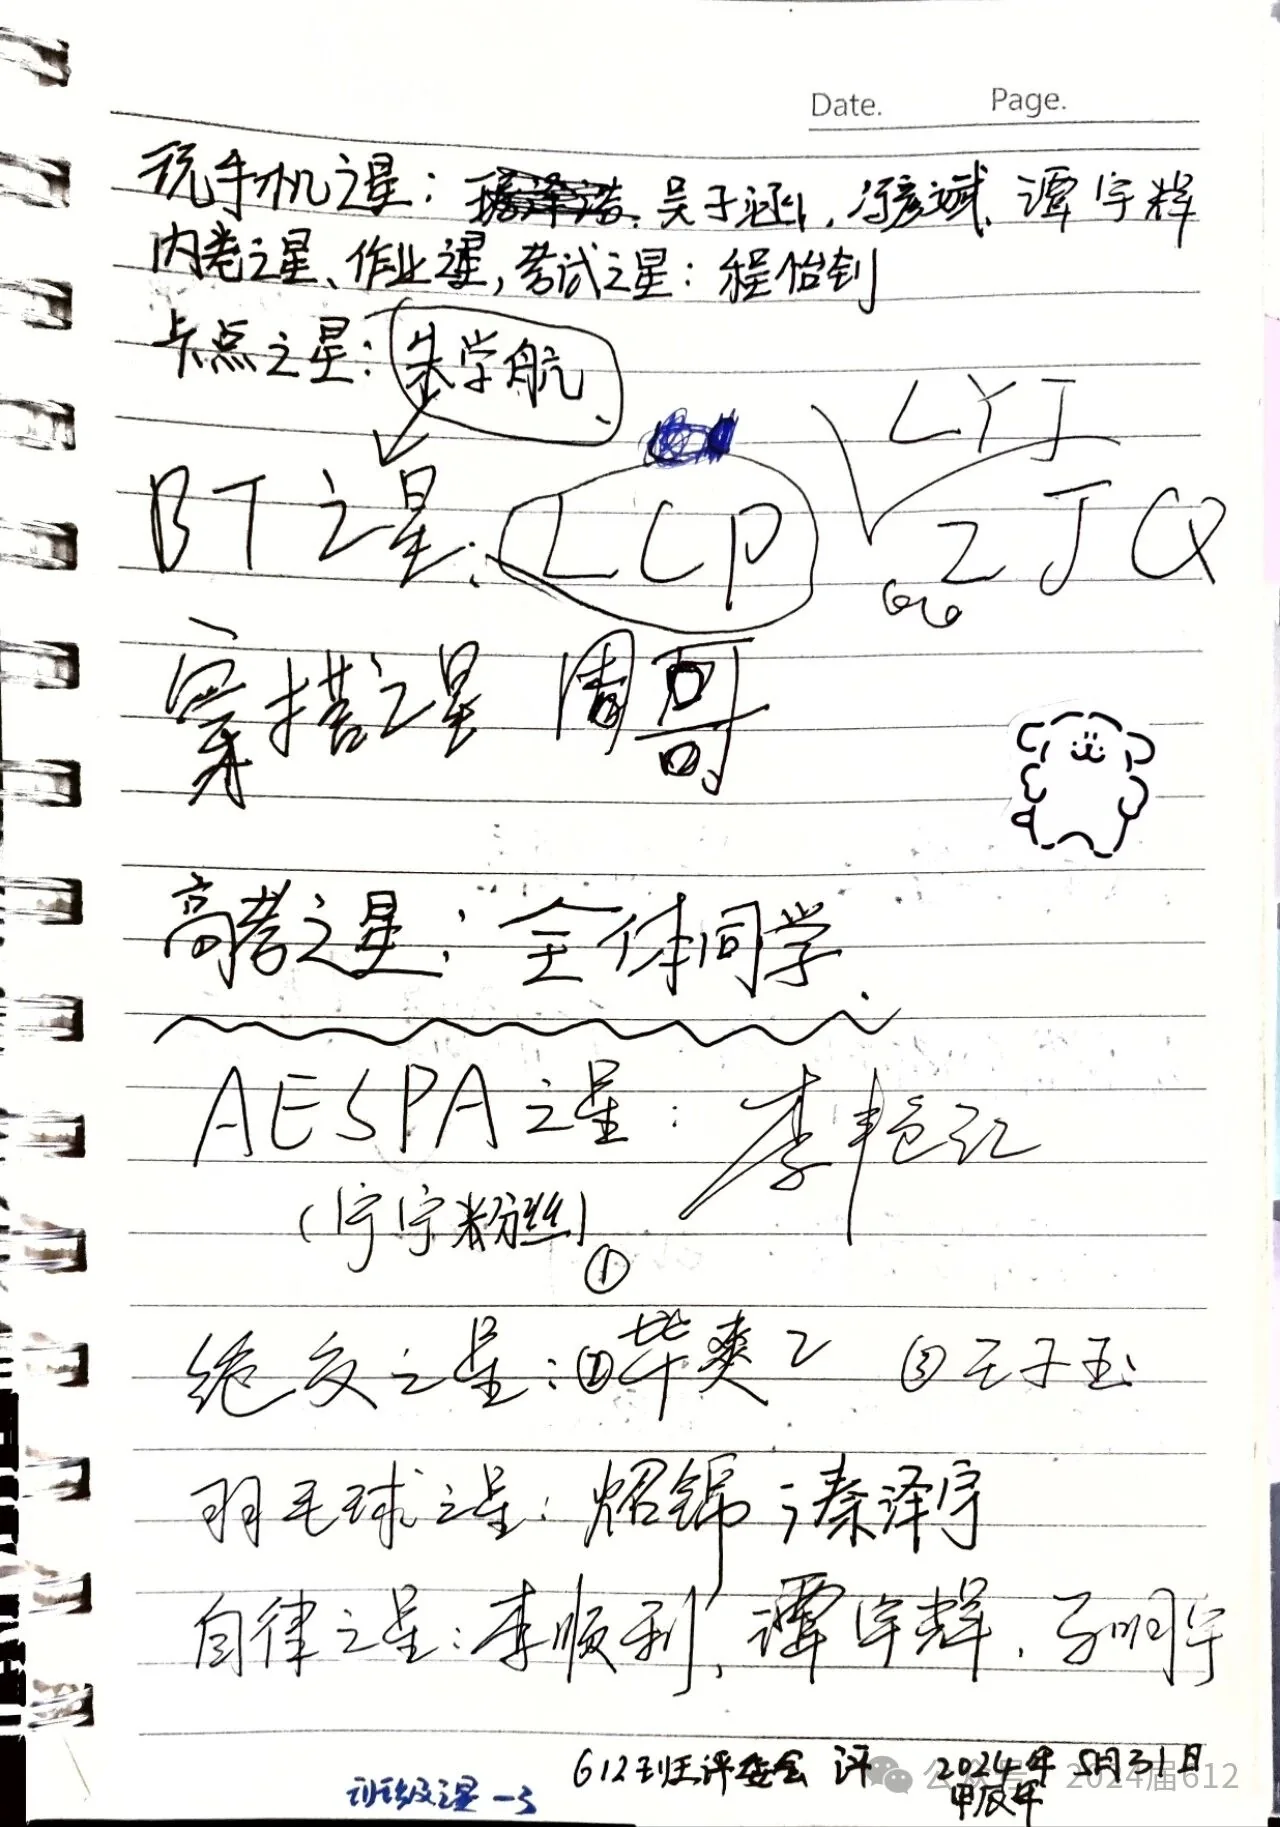 Date. Page.
玩手机之星：吴子涵，冯彦斌，谭宇辉
内卷之星、作业之星，考试之星：程怡钊
卡点之星：朱学航
LYJ
BT之星：LCP
ZJCQ
穿搭之星 周哥
高考之星：全体同学.
AESPA之星：李艳红
（宁宁粉丝）①
绝交之星：②毕爽 ③王子玉
羽毛球之星：炤锦；秦泽宇
自律之星：李顺利，谭宇辉，
612班评委会 评 2024年5月31日
班级之星-3 甲辰年
公众号 2024届612